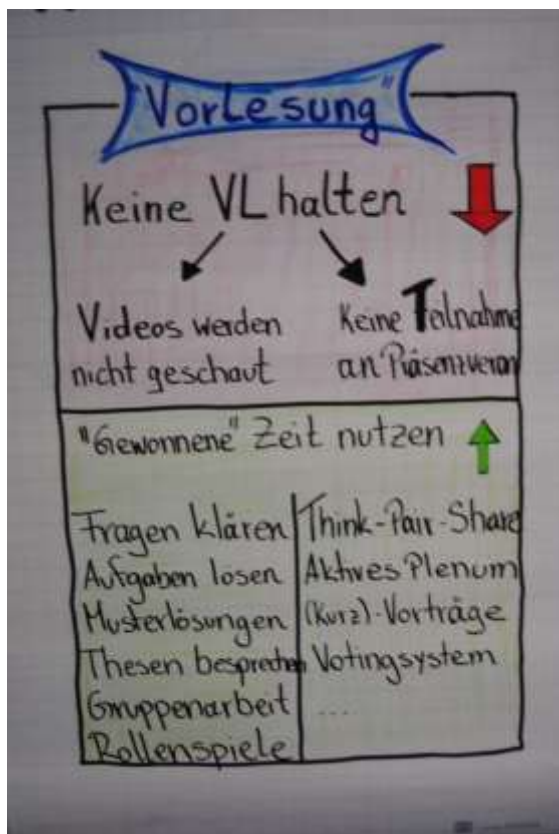 "Vorlesung"
Keine VL halten
Videos werden
nicht geschaut
Keine Teilnahme
an Präsenzveran
"Gewonnene" Zeit nutzen
Fragen klären
Aufgaben lösen
Musterlösungen
Thesen besprechen
Gruppenarbeit
Rollenspiele
Think-Pair-Share
Aktives Plenum
(Kurz)-Vorträge
Votingsystem
....